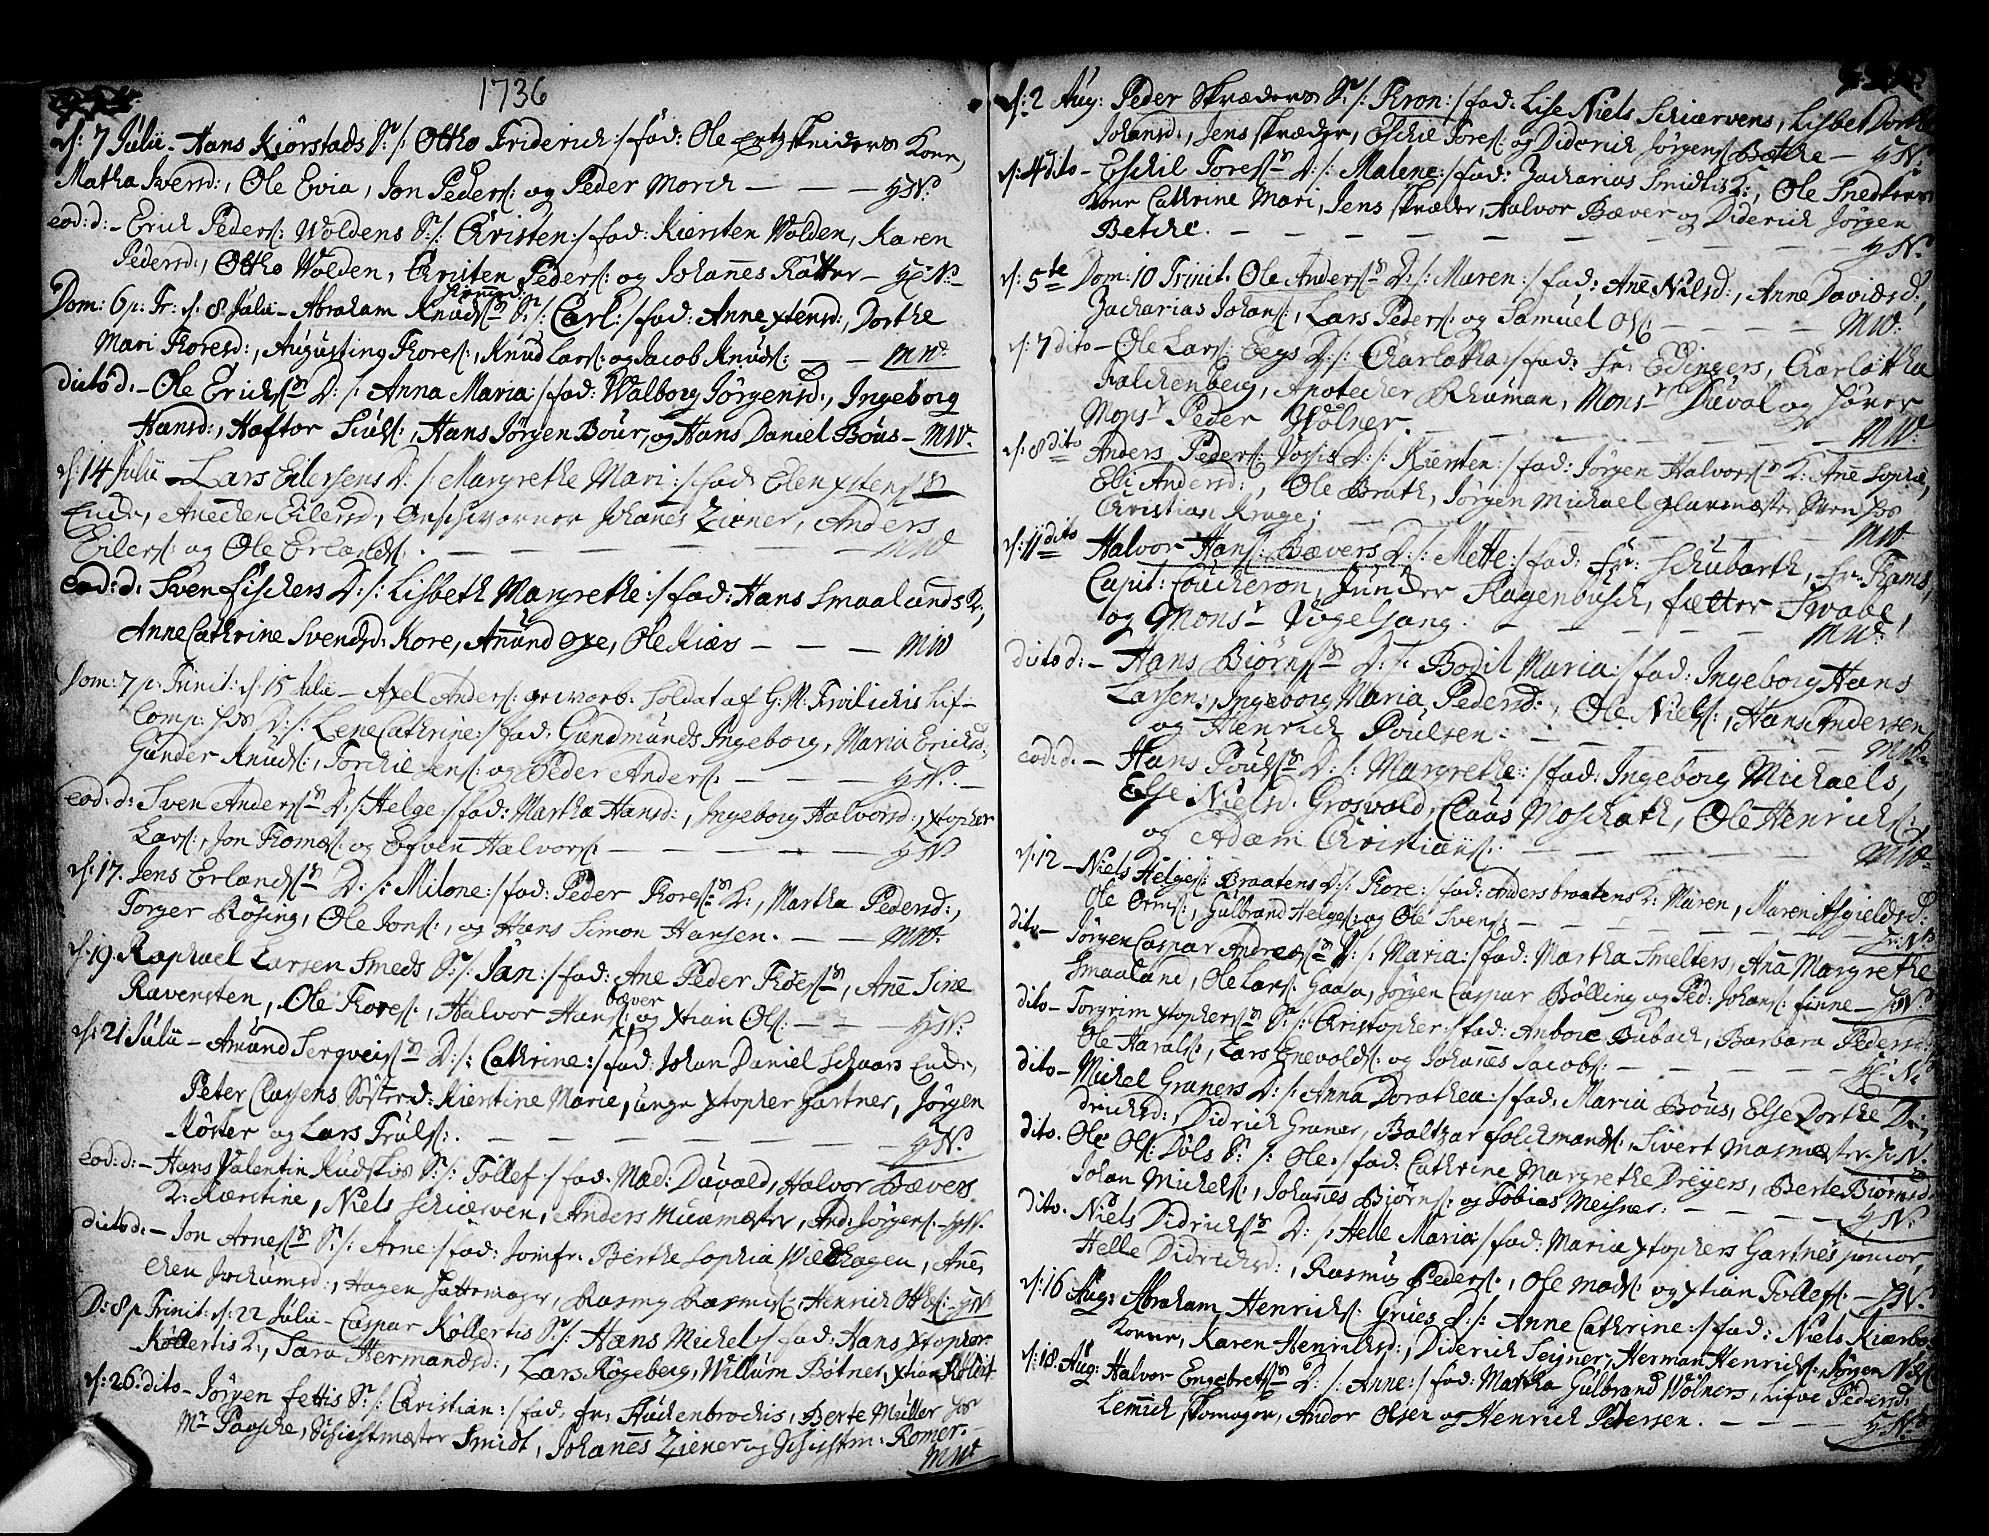 1736
d: 7 Julii - Hans Kiörstads S: /: Otto Friderich :/ fad: Ole Ertzskeiders Kone,
Matha Iversd:, Ole Evia, Jon Peders: og Peder Morch - - - HN:
eod: d: - Erich Peders: Woldens S: /: Christen :/ fad: Kiersten Wolden, Karen
Pedersd:, Otto Wolden, Christen Peders: og Johannes
Dom: 6 p: Tr: d: 8 Julii - Abraham Knuds S: /: Carl :/ fad: Anne Xtensd:, Dorthe
Mari Thoresd:, Augusting Thores:, Knud Lars: og Jacob Knuds: - - MW:
dito d: - Ole Erichs D: /: Anna Maria :/ fad: Walborg Jörgensd:, Ingeborg
Hansd:, Haftor Siuls:, Hans Jörgen Bour, og Hans Daniel Böus - MW:
d: 14 Julii - Lars Eilersens D: /: Margrethe Mari :/ fad: Elen Xtens
Enche, Anechen Eilersd:, Geschworner Johannes Ziener, Anders
Eilers: og Ole Erlands: - - - MW
eod: d: Sven Fischers D: /: Lisbeth Margrethe :/ fad: Hans Smaalands K:,
Anne Cathrine Svends: Kore, Amund Oxe, Ole Kiær - - - MW
Dom: 7 p: Trinit: d: 15 Julii - Axel Anders: geworb: Soldat af G: M: Lif-
Comp: D: /: Lene Cathrine :/ fad: Gundmunds Ingeborg, Maria Ericksd:
Gunder Knuds:, Torchil Jens: og Peder Anders: - - - HN:
eod: d: Sven Anders D: /: Helge :/ fad: Martha Hansd:, Ingeborg Halvorsd:, Xtopher
Lars:, Jon Tomes: og Halvors: - - - HN
d: 17. Jens Erlands D: /: Milone :/ fad: Peder Thores K:, Martha Pedersd:,
Torger Rösing, Ole Jons:, og Hans Simon Hansen. - - MW:
d: 19. Raphael Larsen Smeds S: /: Jan :/ fad: Ane Peder, Ane Sine
Ravensten, Ole Thores:, Halvor Hans: bæver og Xtian Ols: - - - HN:
d: 21 Julii - Amund D: /: Cathrine :/ fad: Johan Daniel Schaars Enche,
Peter Clasens Söster: Kierstine Marie, unge Xtopher Gartner, Jörgen
Köster og Lars Truls: - - - HN:
eod: d: - Hans Valentin S: /: Tollef :/ fad: Mad: Duvald, Halvor Bævers
K: Kierstine, Niels Schierven, Anders Muurmæster, And: Jörgens: - HN.
dito d: - Jon Arnes S: /: Arne :/ fad: Jomfr. Birthe Sophia Wildhagen, Ane-
chen Jochumsd:, Hagen Hattemager, Rasmus:, Henrich Otths: - HN
D: 8 p Trinit: d: 22 Julii - Caspar Köllertis S: /: Hans Michel :/ fad: Hans Xtopher
Köllertis K:, Sara Hermandsd:, Lars Rögeberg, Willum Bötner, Xtian
d: 26. dito - Jörgen Fettis S: /: Christian :/ fad: Fr: Hachenbrochis, Berte Müller
Mr Paasche, Schichtmæster Smidt, Johannes Ziener og Schichtm: Römer -
MW:
d: 2 Aug: Peder Skræders S: /: Kron: :/ fad: Lise Niels Schiærvens, Lisbet Dorthe
Johansd:, Jens Skræder, Eschil Tores: og Diderich Jörgens Betke - HN:
d: 4 dito - Eschil Tores D: /: Malene :/ fad: Zacharias Smidtis K:, Ole
Kone Cathrine Mari, Jens Skræder, Halvor Bæver og Diderich Jörgen
Betcke. - - - HN:
d: 5te Dom: 10 Trinit: Ole Anders D: /: Maren :/ fad: Anne Nilsd:, Anne Davidsd:,
Zacharias Johans:, Lars Peders: og Samuel Ols: - - - MW:
d: 7 dito - Ole Lars: Eegs D: /: Charlotha :/ fad: Fr: Edingers, Charlotha
Falchenberg, Apotecher Rhuman, Monsr Duval og
Monsr Peder Wölner. - - - MW:
d: 8 dito Anders Peders: D: /: Kiersten :/ fad: Jörgen Halvors K: Ane Sophie,
Eli Andersd:, Ole Brath, Jörgen Michael Glasmæster Sven
Christian Kruge: - - - MW
d: 11 dito Halvor Hans: Bævers D: /: Mette :/ fad: Fr: Schubarth, Fr: Thams,
Capit: Coucheron, Junder Hagenbusch, fætter Swabe,
og Monsr Vogelsang. - - - MW:
dito d: - Hans Biörns D: /: Bodil Maria :/ fad: Ingeborg Hans
Larsens, Ingeborg Maria Pedersd:, Ole Niels:, Hans Andersen
og Henrich Poulsen. - - - MW:
eod: d: - Hans Pouls D: /: Margrethe :/ fad: Ingeborg Michaels,
Else Nielsd: Grosvold, Claus Moschath, Ole Henrichs:
og Adam Christians: - - - MW:
d: 12 - Niels Helges: Braatens D: /: Thore :/ fad: Anders braatens K: Maren, Maren Asgieldsd:
Ole Orms:, Gulbrand Helges: og Ole Svens: - - - HN:
dito - Jörgen Caspar Andreæs D: /: Maria :/ fad: Martha Smelters, Anna Margrethe
Smaalane, Ole Lars: Gaasa, Jörgen Caspar Bölling og Ped: Johans: finne - HN
dito - Torgrim Xtophers S: /: Christopher :/ fad: Anborc Bubach, Barbara Pedersd:
Ole Harals:, Lars Enevolds: og Johannes Jacobs: - - - HN:
dito - Michel Graners D: /: Anna Dorothea :/ fad: Maria Böus, Else Dorthe Di-
drichsd:, Didrich Graner, Baltzar Folckmands:, Sivert Masmæster - HN.
dito. Ole Ols: Döls S: /: Ole :/ fad: Cathrine Margrethe Dreyers, Berte Biörnsd:
Johan Michels:, Johannes Biörns: og Tobias Meisner: - - - HN:
dito. Niels Didrichs D: /: Helle Maria :/ fad: Maria Xtophers Gartners junior,
Helle Didrichsd:, Rasmus Peders:, Ole Mads: og Xtian Tollefs: - HN:
d: 16 Aug: Abraham Henrichs: Grües D: /: Anne Cathrine :/ fad: Niels
Kone, Karen Henrichsd:, Diderich Seigner, Herman Henrichs: Jörgen
d: 18. Aug: Halvor Engebrets D: /: Anne :/ fad: Martha Gulbrand Wölners, Pedersd:
Lemich Skomager, Andor Olsen og Henrich Petersen. - - - HN: